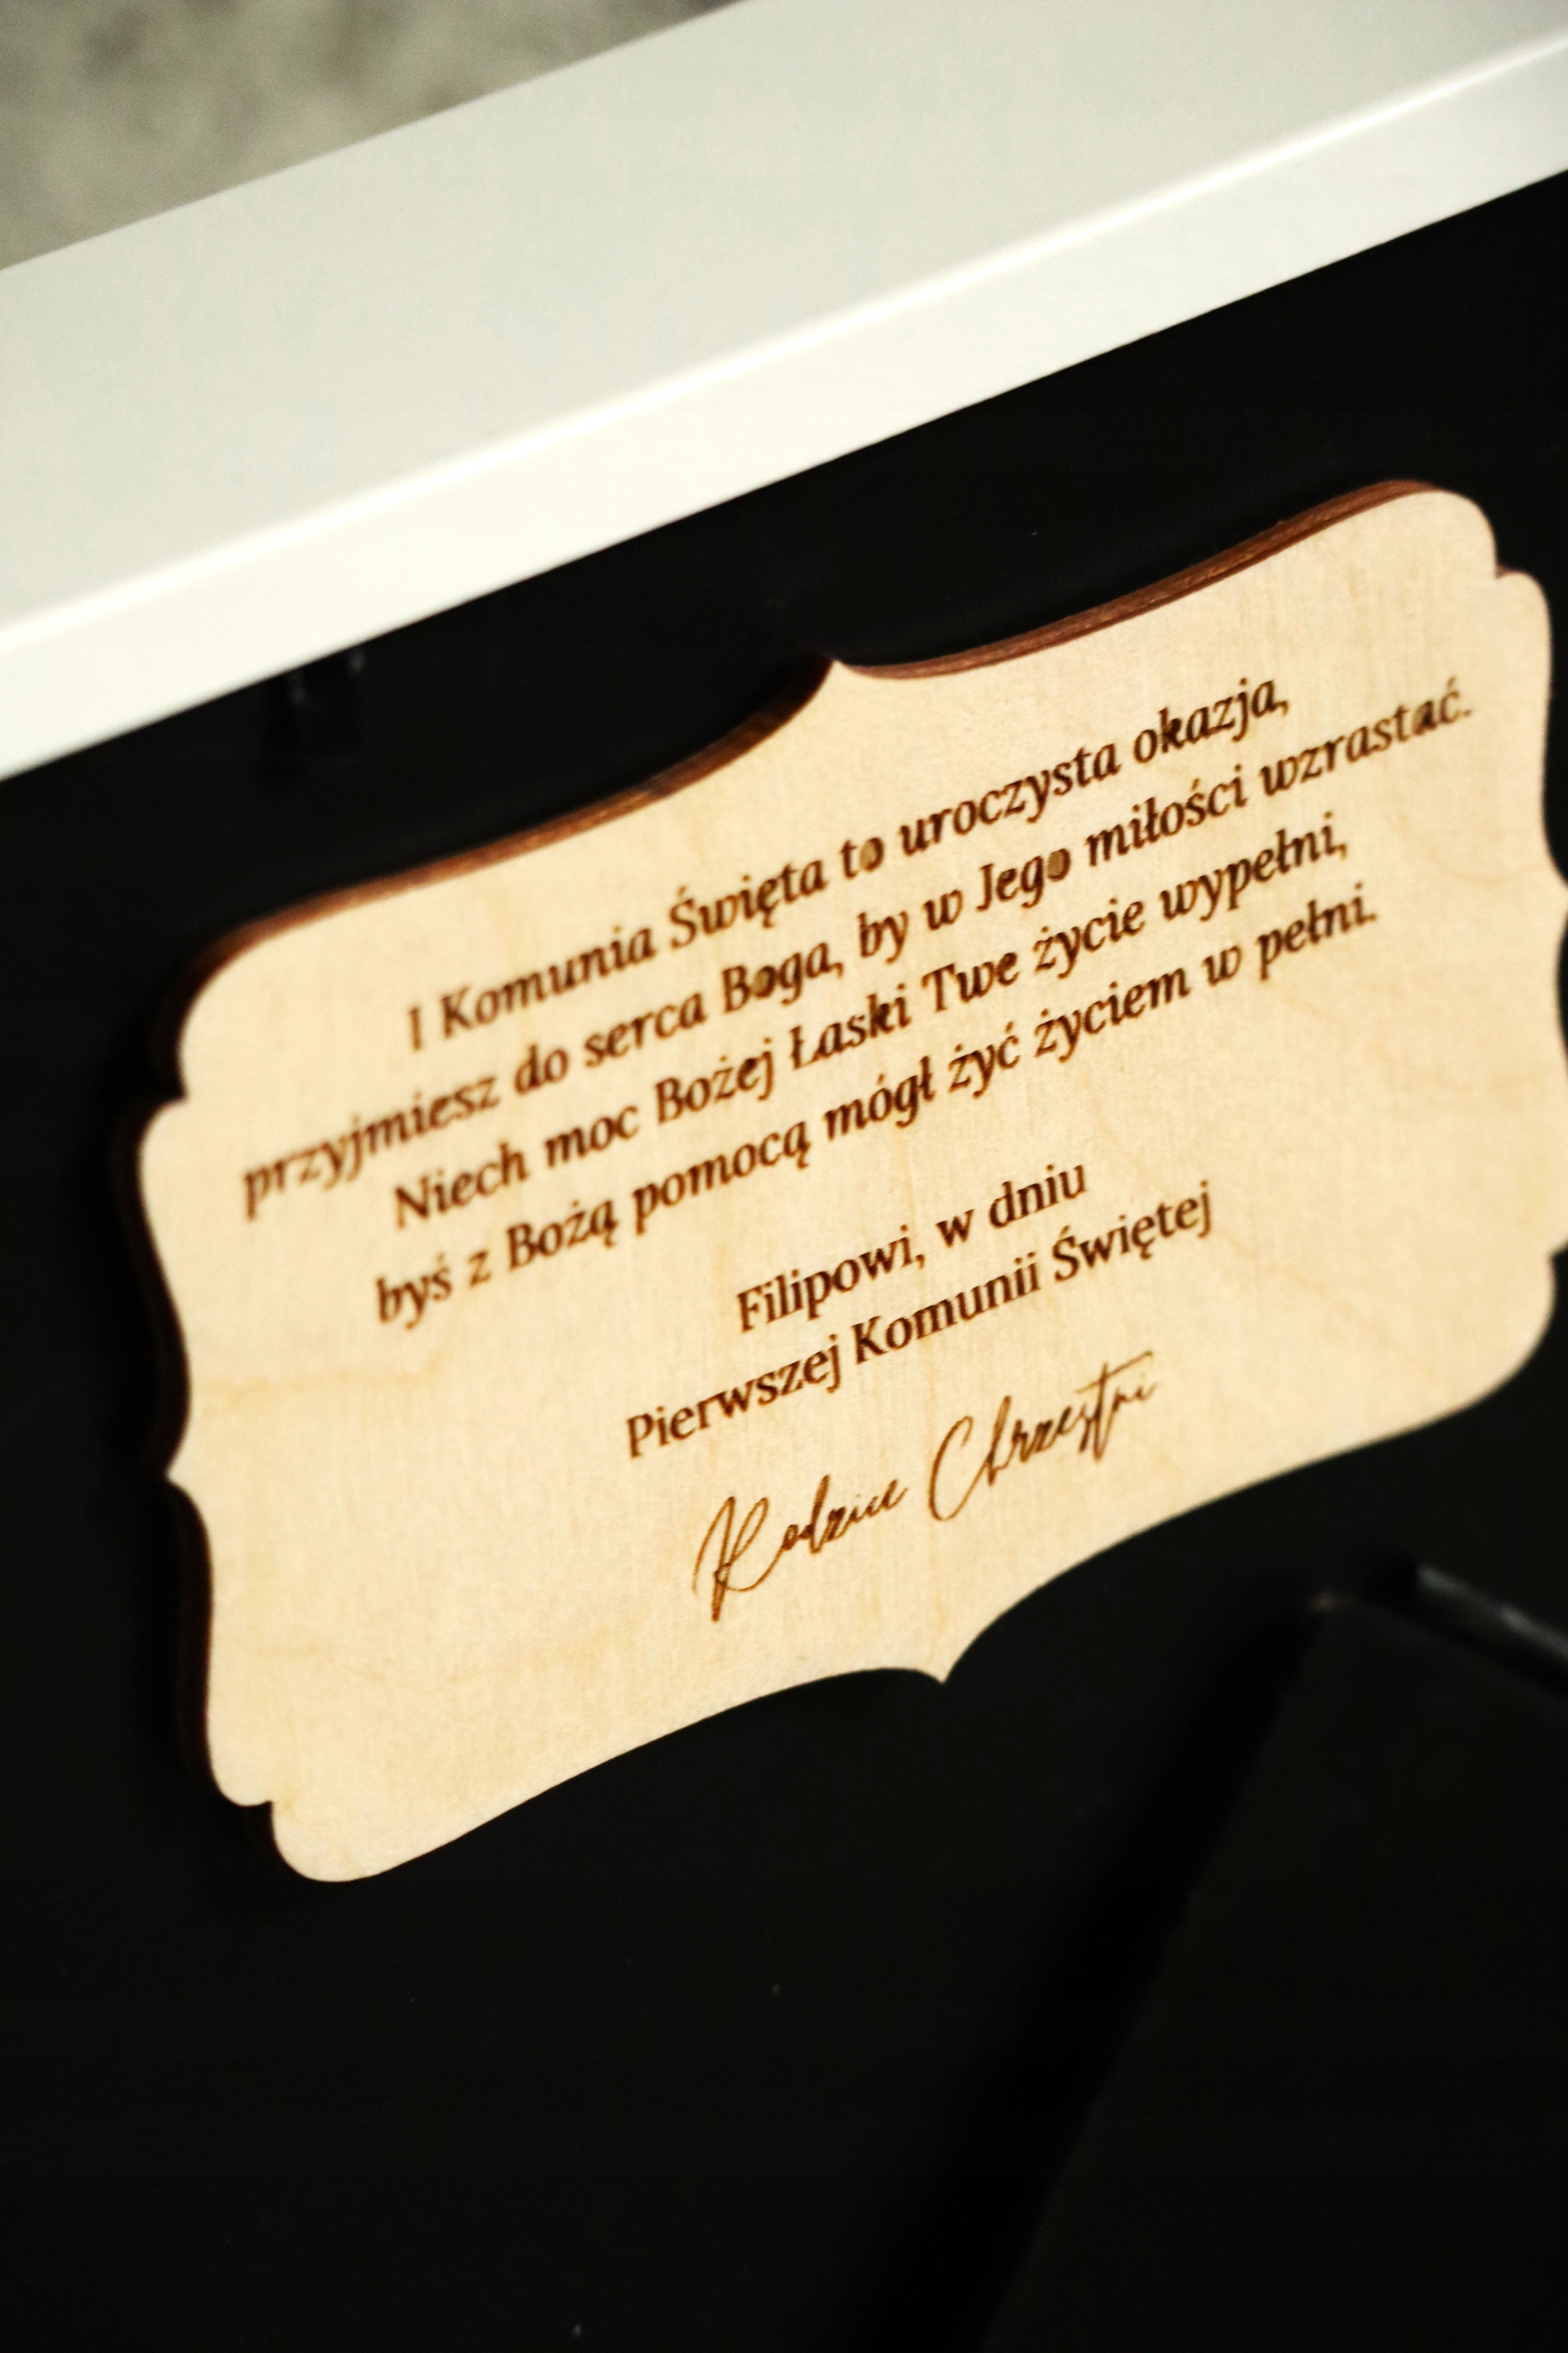 I Komunia Święta to uroczysta okazja,
przyjmiesz do serca Boga, by w Jego miłości wzrastać.
Niech moc Bożej Łaski Twe życie wypełni,
byś z Bożą pomocą mógł żyć życiem w pełni.
Filipowi, w dniu
Pierwszej Komunii Świętej
Rodzice Chrzestni